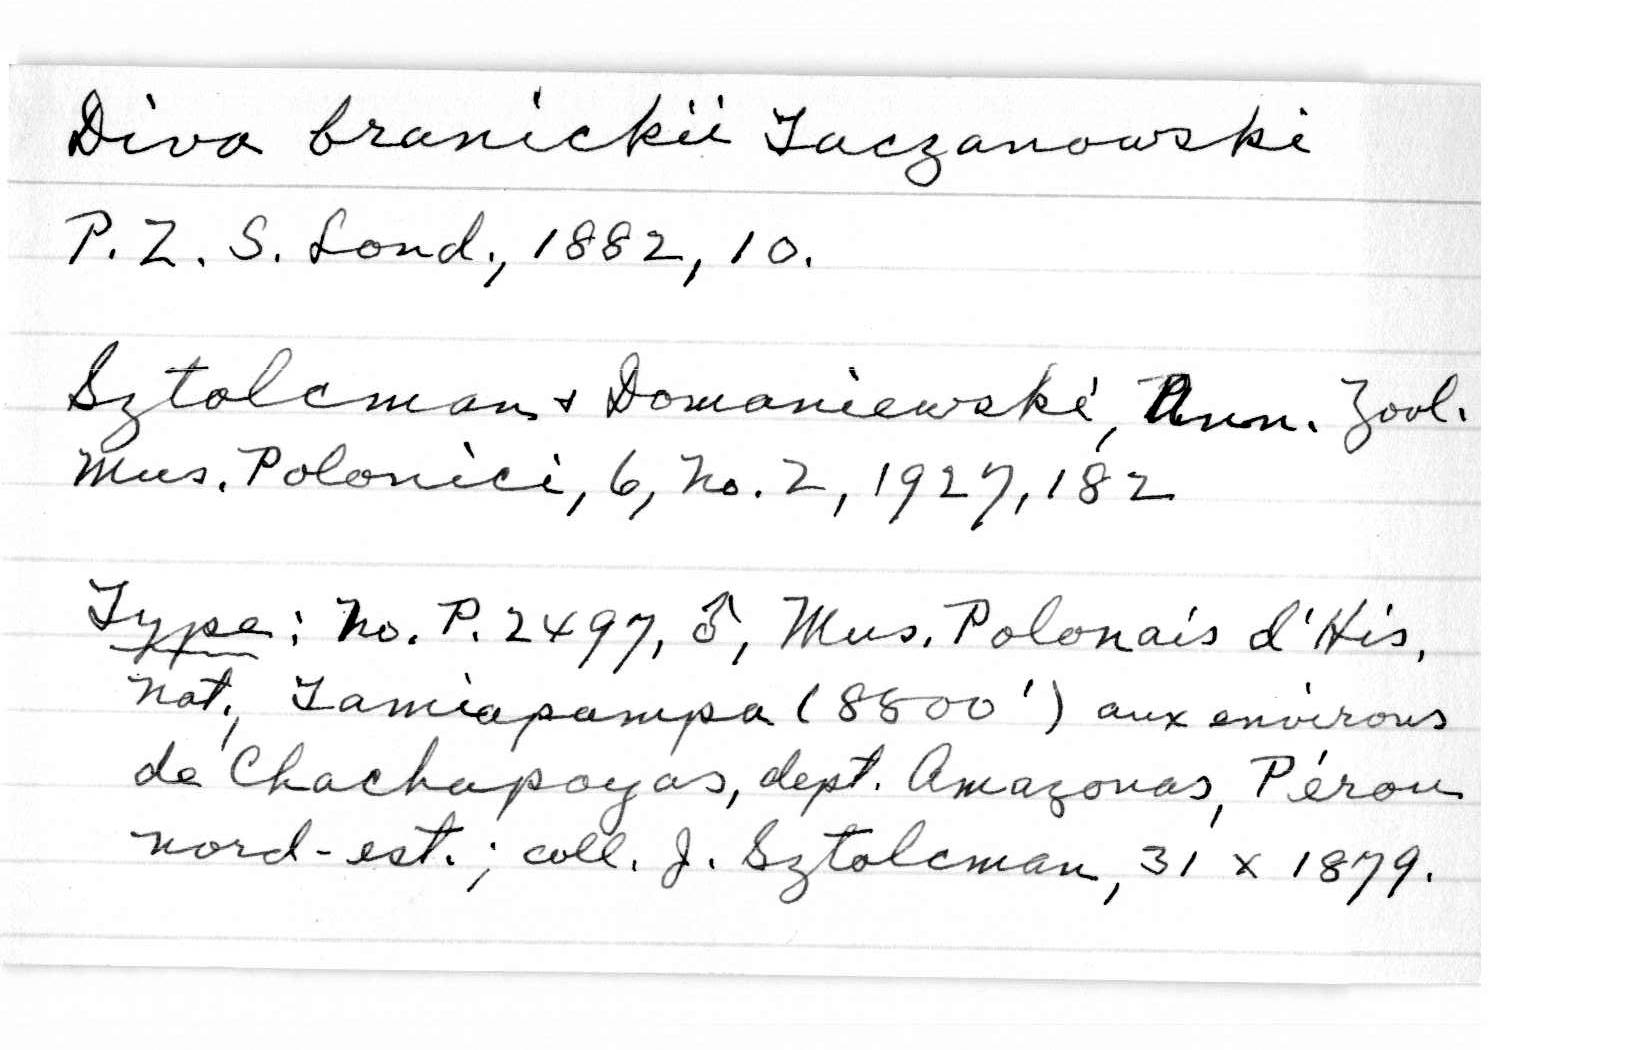 Diva branickii Taczanowski
P. Z. S. Lond., 1882, 10.
Sztolcman & Domaniewski, Ann. Zool.
Mus. Polonici, 6, No. 2, 1927, 182
Type: No. P. 2497, ♂, Mus. Polonais d'His,
Nat., Tamiapampa (8500') aux environs
de Chachapoyas, dept. Amazonas, Pérou
nord-est.; coll. J. Sztolcman, 31 x 1879.